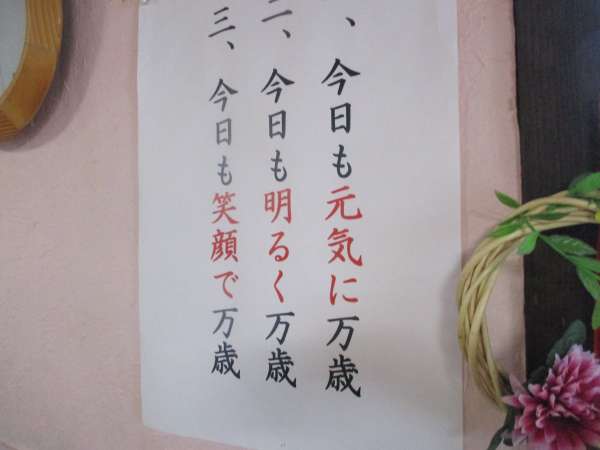 、今日も元気に万歳
二、今日も明るく万歳
三、今日も笑顔で万歳